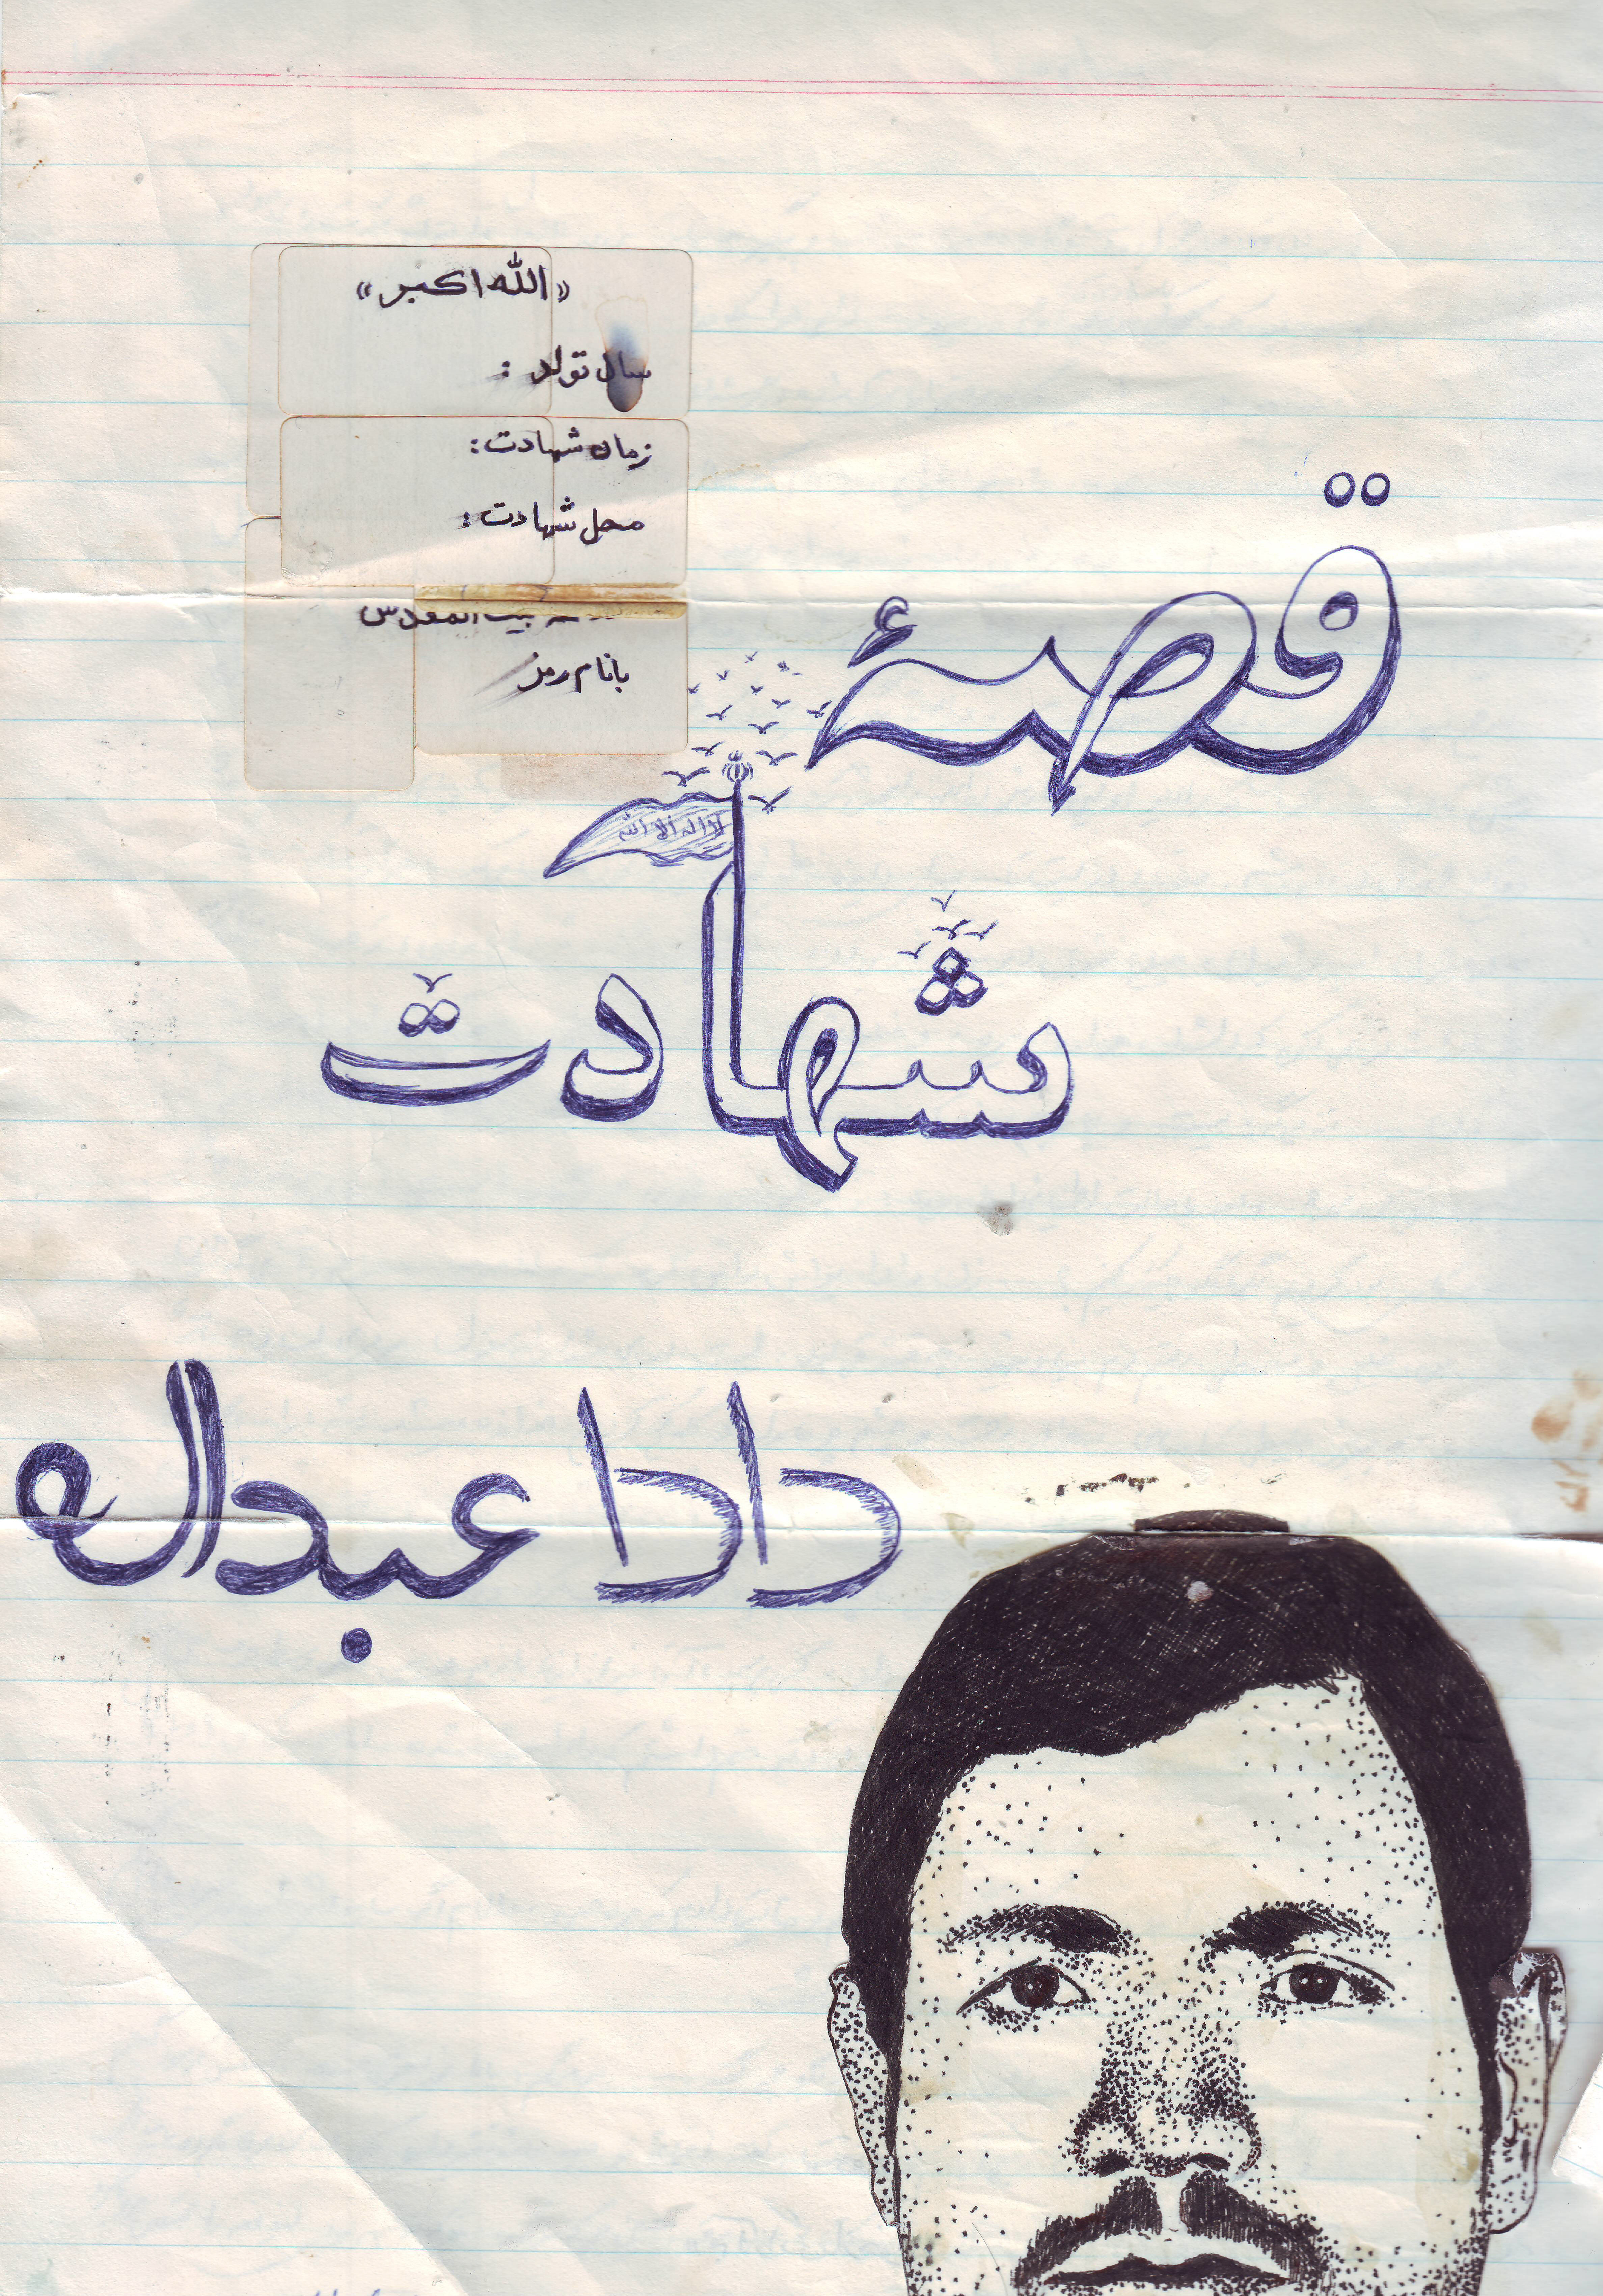 «الله اکبر»
سال تولد :
زمان شهادت :
محل شهادت :
بیت المقدس
بانام رمز
قصهٔ
لا اله الا الله
شهادت
دادا عبداله